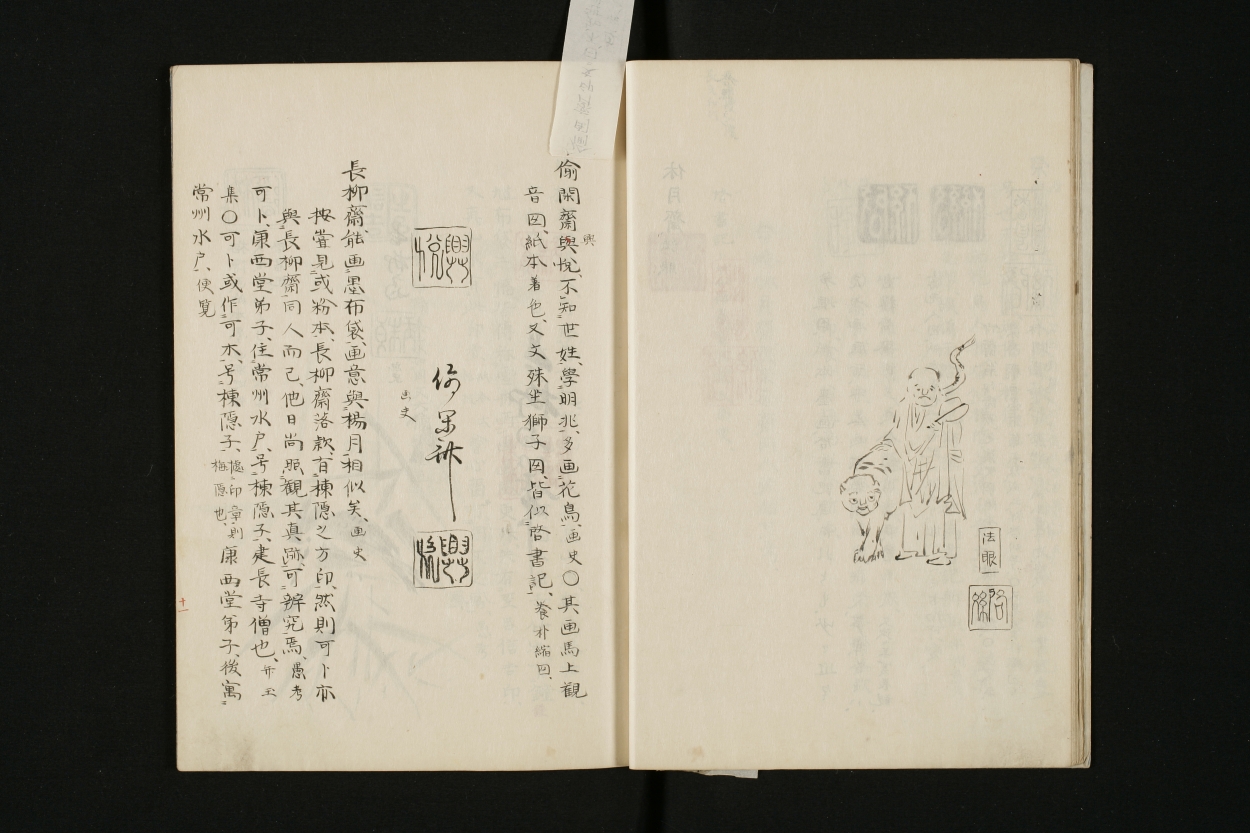 法眼
偷閑齋與悦、不知世姓、學明兆、多画花鳥、画史〇其画馬上觀
與
音図、紙本着色、又文殊坐獅子図、皆似啓書記、養朴縮図、
画史
長柳齋、能画墨布袋、画意與楊月相似矣、画史
按嘗見或粉本、長柳齋落款、有棟隠之方印、然則可卜亦
與長柳齋同人而已、他日尚照觀其真跡、可辨究焉、愚考
可卜、康西堂弟子、住常州水戸、号棟隠子、建長寺僧也、弁玉
集〇可卜或作可木、号棟隠子、據印章則梅隠也、康西堂弟子、後寓
常州水戸、便覧
十一